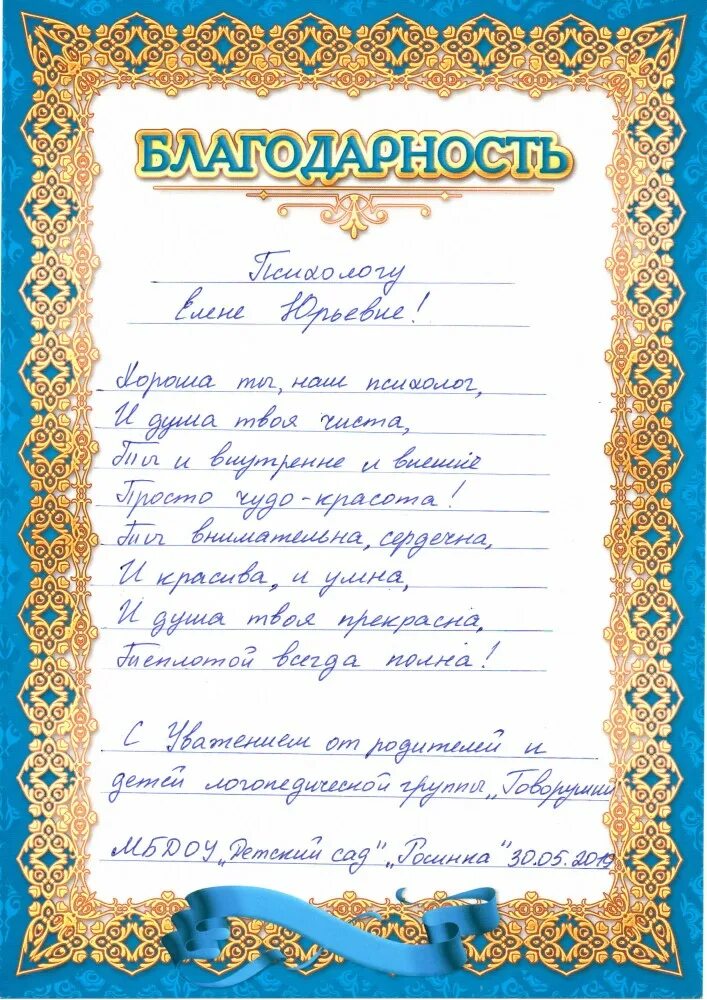 БЛАГОДАРНОСТЬ
Психологу
Елене Юрьевне!
Хороша ты, наш психолог,
И душа твоя чиста,
Ты и внутренне и внешне
Просто чудо-красота!
Ты внимательна, сердечна,
И красива, и умна,
И душа твоя прекрасна,
Теплотой всегда полна!
С Уважением от родителей и
детей логопедической группы „Говорушки
МБДОУ „Детский сад" „Росинка" 30.05.2019